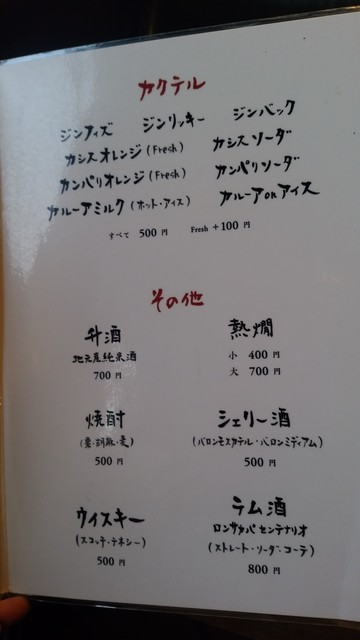 カクテル
ジンフィズ ジンリッキー ジンバック
カシスオレンジ(Fresh) カシスソーダ
カンパリオレンジ(Fresh) カンパリソーダ
カルーアミルク(ホット・アイス) カルーアonアイス
すべて 500円 Fresh +100円
その他
升酒 熱燗
地元産純米酒 小 400円
700円 大 700円
焼酎 シェリー酒
(バロンモスカテル・バロンミディアム)
500円 500円
ウイスキー ラム酒
ロンサカパ センテナリオ
(スコッチ・テネシー) (ストレート・ソーダ・コーラ)
500円 800円